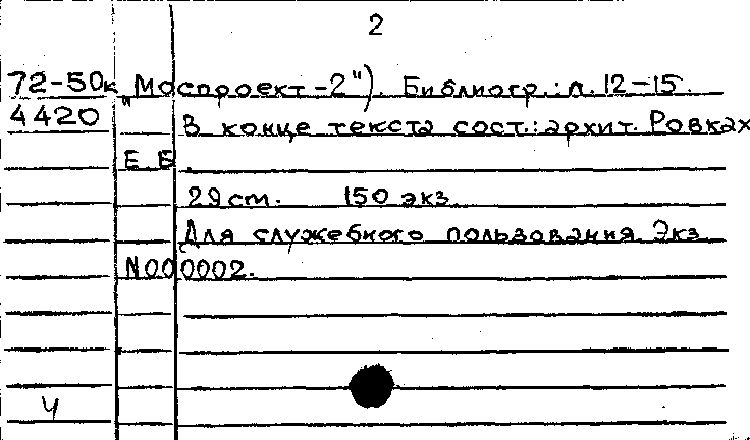 2
72-50к „Моспроект-2"). Библиогр.: л. 12-15.
4420 В конце текста сост.: архит. Ровках
Е Б
29 см. 150 экз.
Для служебного пользования. Экз.
N000002.
Ч